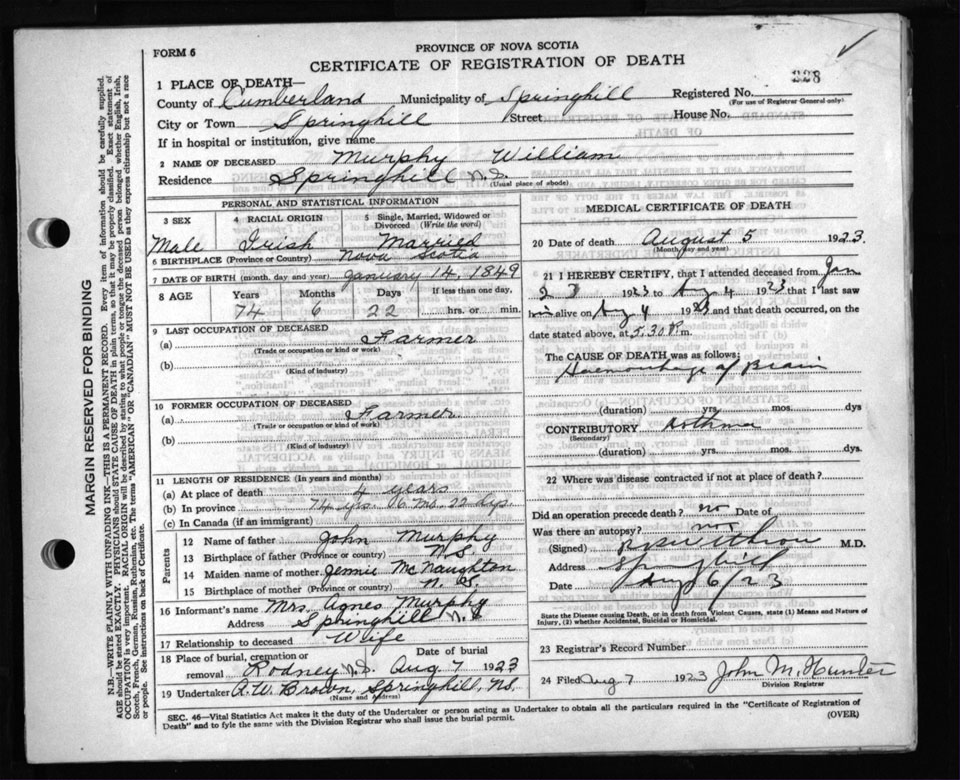 FORM 6
PROVINCE OF NOVA SCOTIA
CERTIFICATE OF REGISTRATION OF DEATH
328
1 PLACE OF DEATH—
County of Cumberland Municipality of Springhill Registered No.
(For use of Registrar General only)
City or Town Springhill Street House No.
If in hospital or institution, give name
2 NAME OF DECEASED Murphy William
Residence Springhill N.S.
(Usual place of abode)
PERSONAL AND STATISTICAL INFORMATION
3 SEX 4 RACIAL ORIGIN 5 Single, Married, Widowed or Divorced (Write the word)
Male Irish Married
6 BIRTHPLACE (Province or Country) Nova Scotia
7 DATE OF BIRTH (month, day and year) January 14, 1849
8 AGE Years Months Days If less than one day,
74 6 22 hrs. or min.
9 LAST OCCUPATION OF DECEASED
(a) Farmer
(Trade or occupation or kind or work)
(b)
(Kind of industry)
10 FORMER OCCUPATION OF DECEASED
(a) Farmer
(Trade or occupation or kind of work)
(b)
(Kind of industry)
11 LENGTH OF RESIDENCE (In years and months)
(a) At place of death 4 years
(b) In province 74 yrs. 6 mo. 22 dys.
(c) In Canada (if an immigrant)
Parents
12 Name of father John Murphy
13 Birthplace of father (Province or country) N.S.
14 Maiden name of mother Jennie McNaughton
15 Birthplace of mother (Province or country) N.S.
16 Informant's name Mrs. Agnes Murphy
Address Springhill N.S.
17 Relationship to deceased Wife
18 Place of burial, cremation or removal Date of burial
Rodney N.S. Aug. 7 1923
19 Undertaker A.W. Brown, Springhill, N.S.
(Name and address)
MEDICAL CERTIFICATE OF DEATH
20 Date of death August 5 1923.
(Month, day and year)
21 I HEREBY CERTIFY, that I attended deceased from Jan
1923 to Aug 4 1923 that I last saw
him alive on Aug 4 1923 and that death occurred, on the
date stated above, at 5.30 P.m.
The CAUSE OF DEATH was as follows:
Haemorrhage of Brain
(duration) yrs. mos. dys
CONTRIBUTORY Asthma
(Secondary)
(duration) yrs. mos. dys.
22 Where was disease contracted if not at place of death?
Did an operation precede death? no Date of
Was there an autopsy? not
(Signed) M.D.
Address Springhill
Date Aug 6/23
State the Disease causing Death, or in death from Violent Causes, state (1) Means and Nature of
Injury, (2) whether Accidental, Suicidal or Homicidal.
23 Registrar's Record Number
24 Filed Aug 7 1923 John M. Hunter
Division Registrar
SEC. 46—Vital Statistics Act makes it the duty of the Undertaker or person acting as Undertaker to obtain all the particulars required in the "Certificate of Registration of
Death" and to fyle the same with the Division Registrar who shall issue the burial permit.
(OVER)
MARGIN RESERVED FOR BINDING
N.B.—WRITE PLAINLY WITH UNFADING INK—THIS IS A PERMANENT RECORD. Every item of information should be carefully supplied.
AGE should be stated EXACTLY. PHYSICIANS should STATE CAUSE OF DEATH in plain terms, so that it may be properly classified. Exact statement of
OCCUPATION is very important. RACIAL ORIGIN will be described by stating to what people or tongue the deceased person belonged whether English, Irish,
Scotch, French, German, Russian, Ruthenian, etc. The terms "AMERICAN" OR "CANADIAN" MUST NOT BE USED as they express citizenship but not a race
or people. See instructions on back of Certificate.